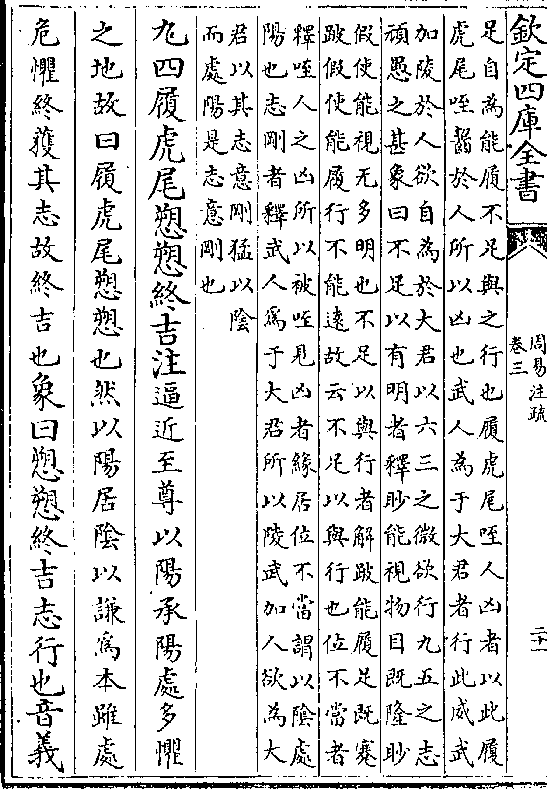 欽定四庫全書
周易注疏
卷三
二十一
足自為能履不足與之行也履虎尾咥人凶者以此履
虎尾咥齧於人所以凶也武人為于大君者行此威武
加陵於人欲自為於大君以六三之微欲行九五之志
頑愚之甚象曰不足以有明者釋眇能視物目既隆眇
假使能視无多明也不足以與行者解跛能履足既蹇
跛假使能履行不能遠故云不足以與行也位不當者
釋咥人之凶所以被咥見凶者緣居位不當謂以陰處
陽也志剛者釋武人為于大君所以陵武加人欲為大
君以其志意剛猛以陰
而處陽是志意剛也
九四履虎尾愬愬終吉注逼近至尊以陽承陽處多懼
之地故曰履虎尾愬愬也然以陽居陰以謙為本雖處
危懼終獲其志故終吉也象曰愬愬終吉志行也音義